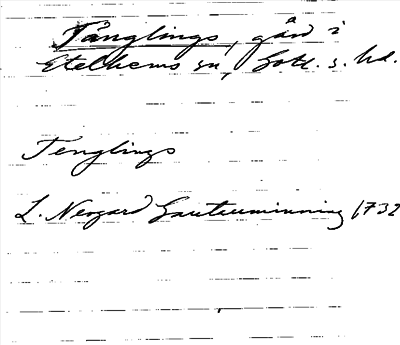 Tänglings, gård i
Etelhems sn, Gotl. s. hd.
Tenglings
L. Neogard Gautauminning 1732